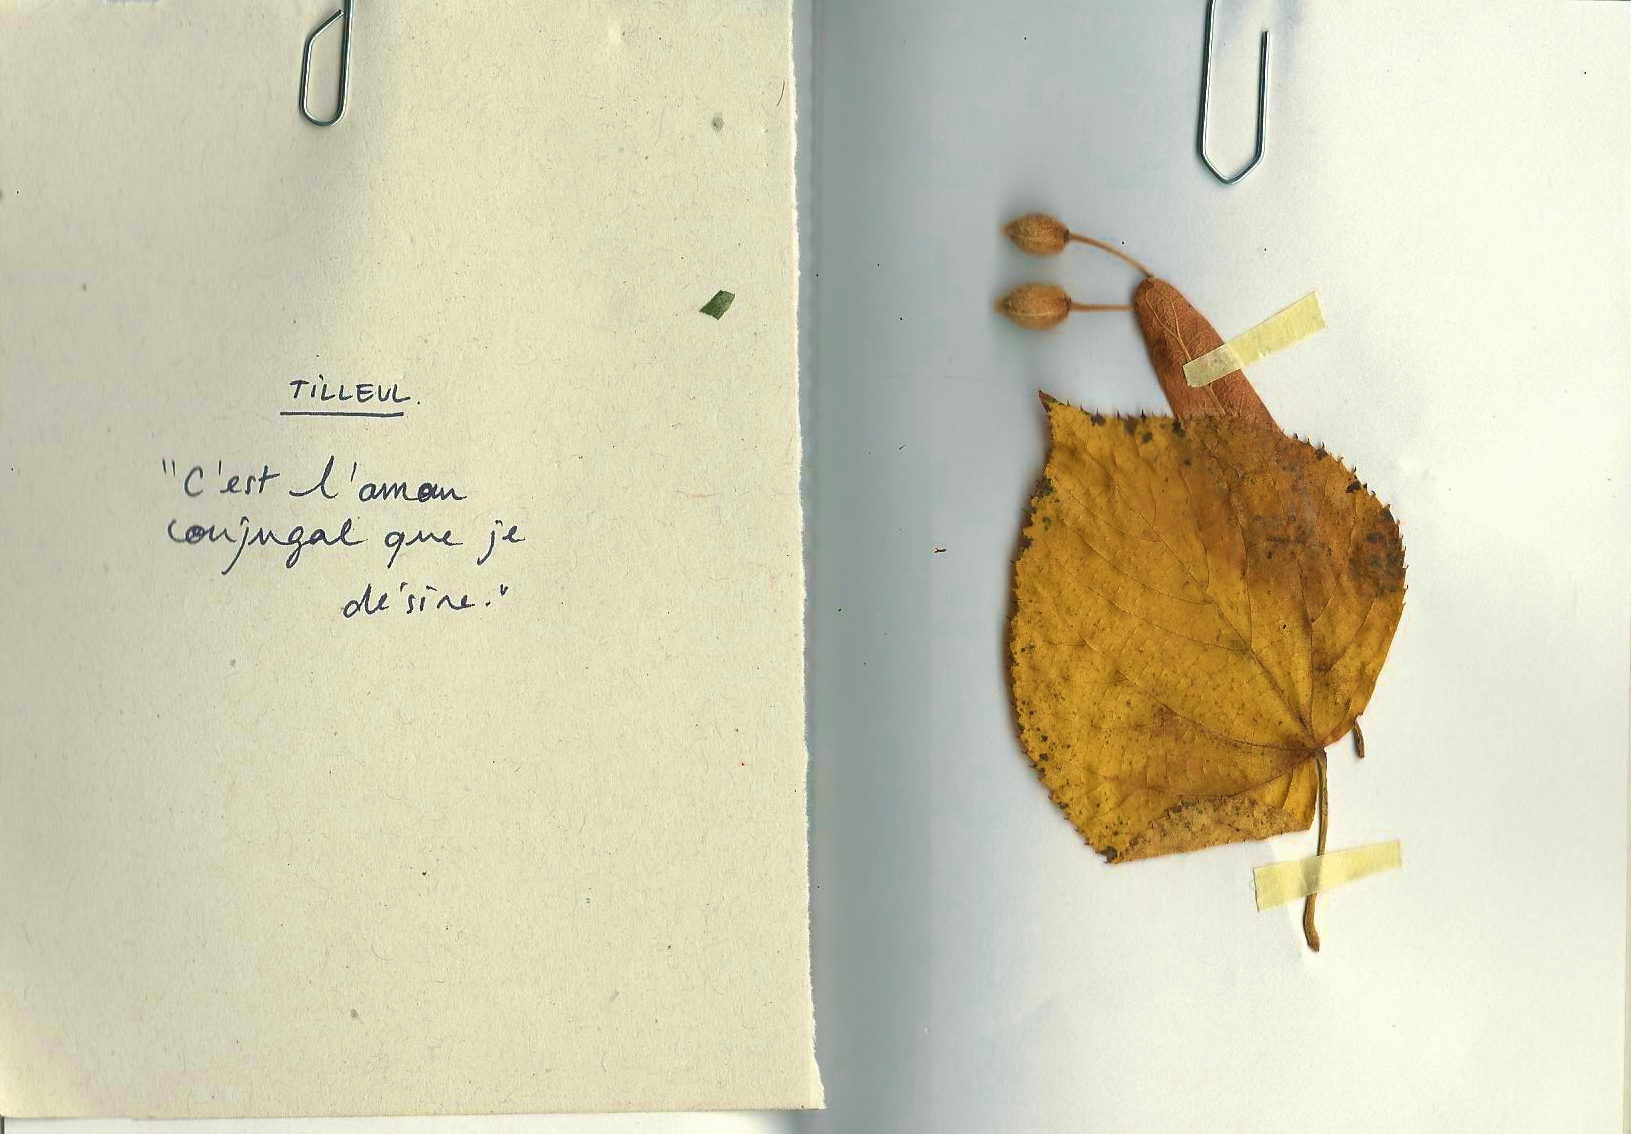 TiLLEUL.
"C'est l'amour
conjugal que je
désire."